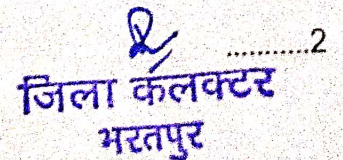 ...........2
जिला कॅलक्टर
भरतपुर